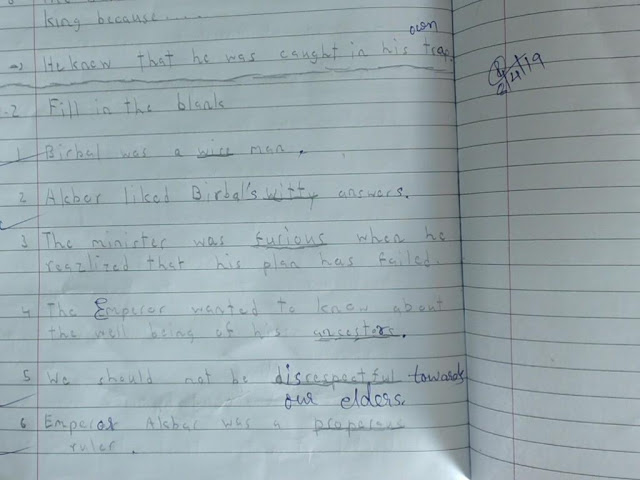 king because....
He knew that he was caught in his own trap.
Fill in the blank
1 Birbal was a wise man.
2 Akbar liked Birbal's witty answers.
3 The minister was furious when he
reazlized that his plan has failed.
4 The Emperor wanted to know about
the well being of his ancestors.
5 We should not be disrespectful towards
our elders.
6 Emperor Akbar was a
ruler.